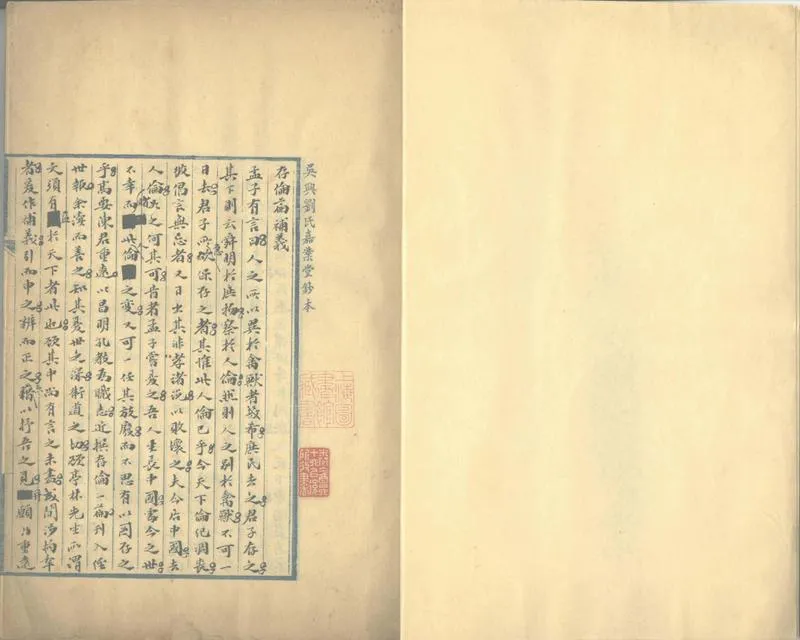 吳興劉氏嘉業堂鈔本
存倫篇補義
孟子有言曰人之所以異於禽獸者幾希庶民去之君子存之
其下則云舜明於庶物察於人倫然則人之別於禽獸不可一
日去君子所欲保存之者其惟此人倫已乎今天下倫紀凋喪
彼倡言無忌者又日出其非孝諸說以敗壞之夫今居中國去
人倫孟之何其可昔者孟子嘗憂之吾人生長中國當今之世
不幸而 此倫 之變又可一任其放廢而不思有以圖存之
乎高要陳君重遠以昌明孔教為職志近撰存倫一篇刊入經
世報余讀而善之知其憂世之深衛道之切顧亭林先生所謂
文須有益於天下者此也顧其中尚有言之未盡或間涉拘牽
者爰作補義引而申之辨而正之藉以抒吾之見 願與重遠